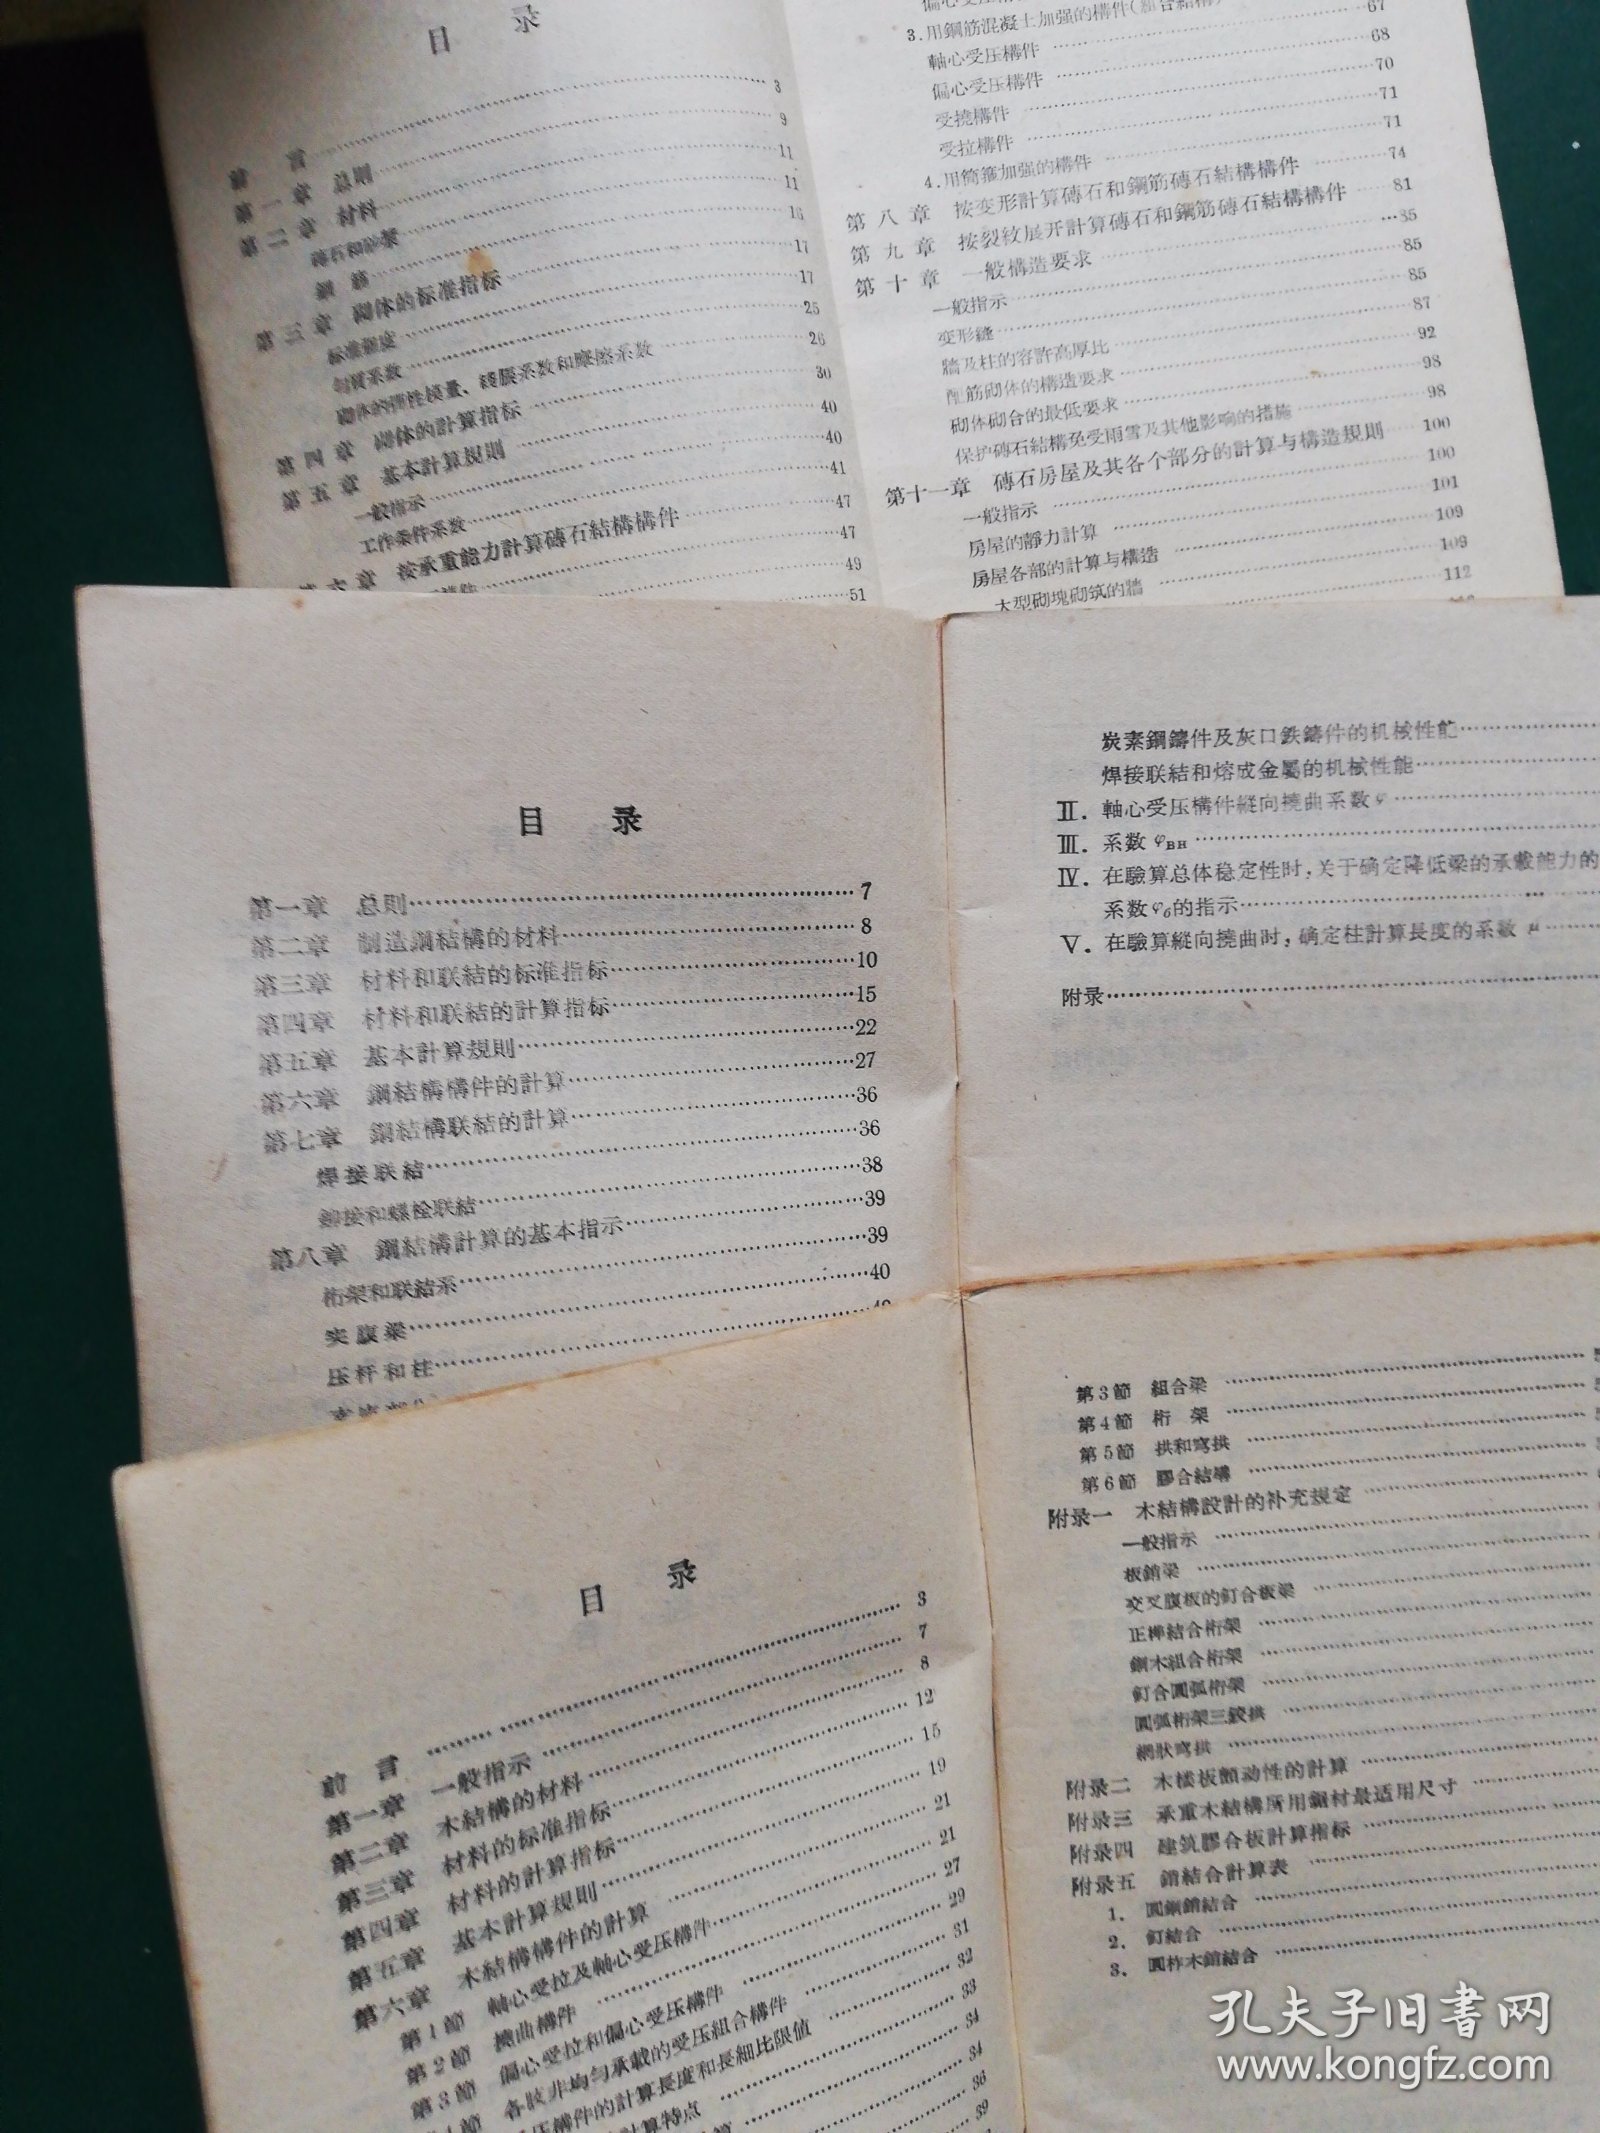 目 录
前 言 3
第一章 总則 9
第二章 材料 11
磚石和砂漿 11
鋼 筋 16
第三章 砌体的标准指标 17
标准强度 17
勻質系数 25
砌体的彈性模量、綫脹系数和摩擦系数 26
第四章 砌体的計算指标 30
第五章 基本計算規則 40
一般指示 40
工作条件系数 41
按承重能力計算磚石結構構件 47
47
49
51
3.用鋼筋混凝土加强的構件(組合結構) 67
軸心受压構件 68
偏心受压構件 70
受撓構件 71
受拉構件 71
4.用箍加强的構件 74
第八章 按变形計算磚石和鋼筋磚石結構構件 81
第九章 按裂紋展开計算磚石和鋼筋磚石結構構件 85
第十章 一般構造要求 85
一般指示 85
变形縫 87
牆及柱的容許高厚比 92
配筋砌体的構造要求 98
砌体砌合的最低要求 98
保护磚石結構免受雨雪及其他影响的措施 100
第十一章 磚石房屋及其各个部分的計算与構造規則 100
一般指示 101
房屋的靜力計算 109
房屋各部的計算与構造 109
大型砌塊砌筑的牆 112
目 录
第一章 总則 7
第二章 制造鋼結構的材料 8
第三章 材料和联結的标准指标 10
第四章 材料和联結的計算指标 15
第五章 基本計算規則 22
第六章 鋼結構構件的計算 27
第七章 鋼結構联結的計算 36
焊接联結 36
鉚接和螺栓联結 38
第八章 鋼結構計算的基本指示 39
桁架和联結系 39
实腹梁 40
压杆和柱
炭素鋼鑄件及灰口鉄鑄件的机械性能
焊接联結和熔成金屬的机械性能
Ⅱ. 軸心受压構件縱向撓曲系数φ
Ⅲ. 系数 φвн
Ⅳ. 在驗算总体稳定性时,关于确定降低梁的承載能力的
系数φб的指示
Ⅴ. 在驗算縱向撓曲时,确定柱計算長度的系数 μ
附录
目 录
前 言 3
第一章 一般指示 7
第二章 木結構的材料 8
第三章 材料的标准指标 12
第四章 材料的計算指标 15
第五章 基本計算規則 19
第六章 木結構構件的計算 21
第1節 軸心受拉及軸心受压構件 21
第2節 撓曲構件 27
第3節 偏心受拉和偏心受压構件 29
各肢非均勻承載的受压組合構件 31
压構件的計算長度和長細比限值 32
計算特点 33
34
34
36
39
第3節 組合梁
第4節 桁 架
第5節 拱和穹拱
第6節 膠合結構
附录一 木結構設計的补充規定
一般指示
板銷梁
交叉腹板的釘合板梁
正榫結合桁架
鋼木組合桁架
釘合圓弧桁架
圓弧桁架三鉸拱
網狀穹拱
附录二 木楼板顫动性的計算
附录三 承重木結構所用鋸材最适用尺寸
附录四 建筑膠合板計算指标
附录五 銷結合計算表
1. 圓鋼銷結合
2. 釘結合
3. 圓柞木銷結合
孔夫子旧书网
www.kongfz.com